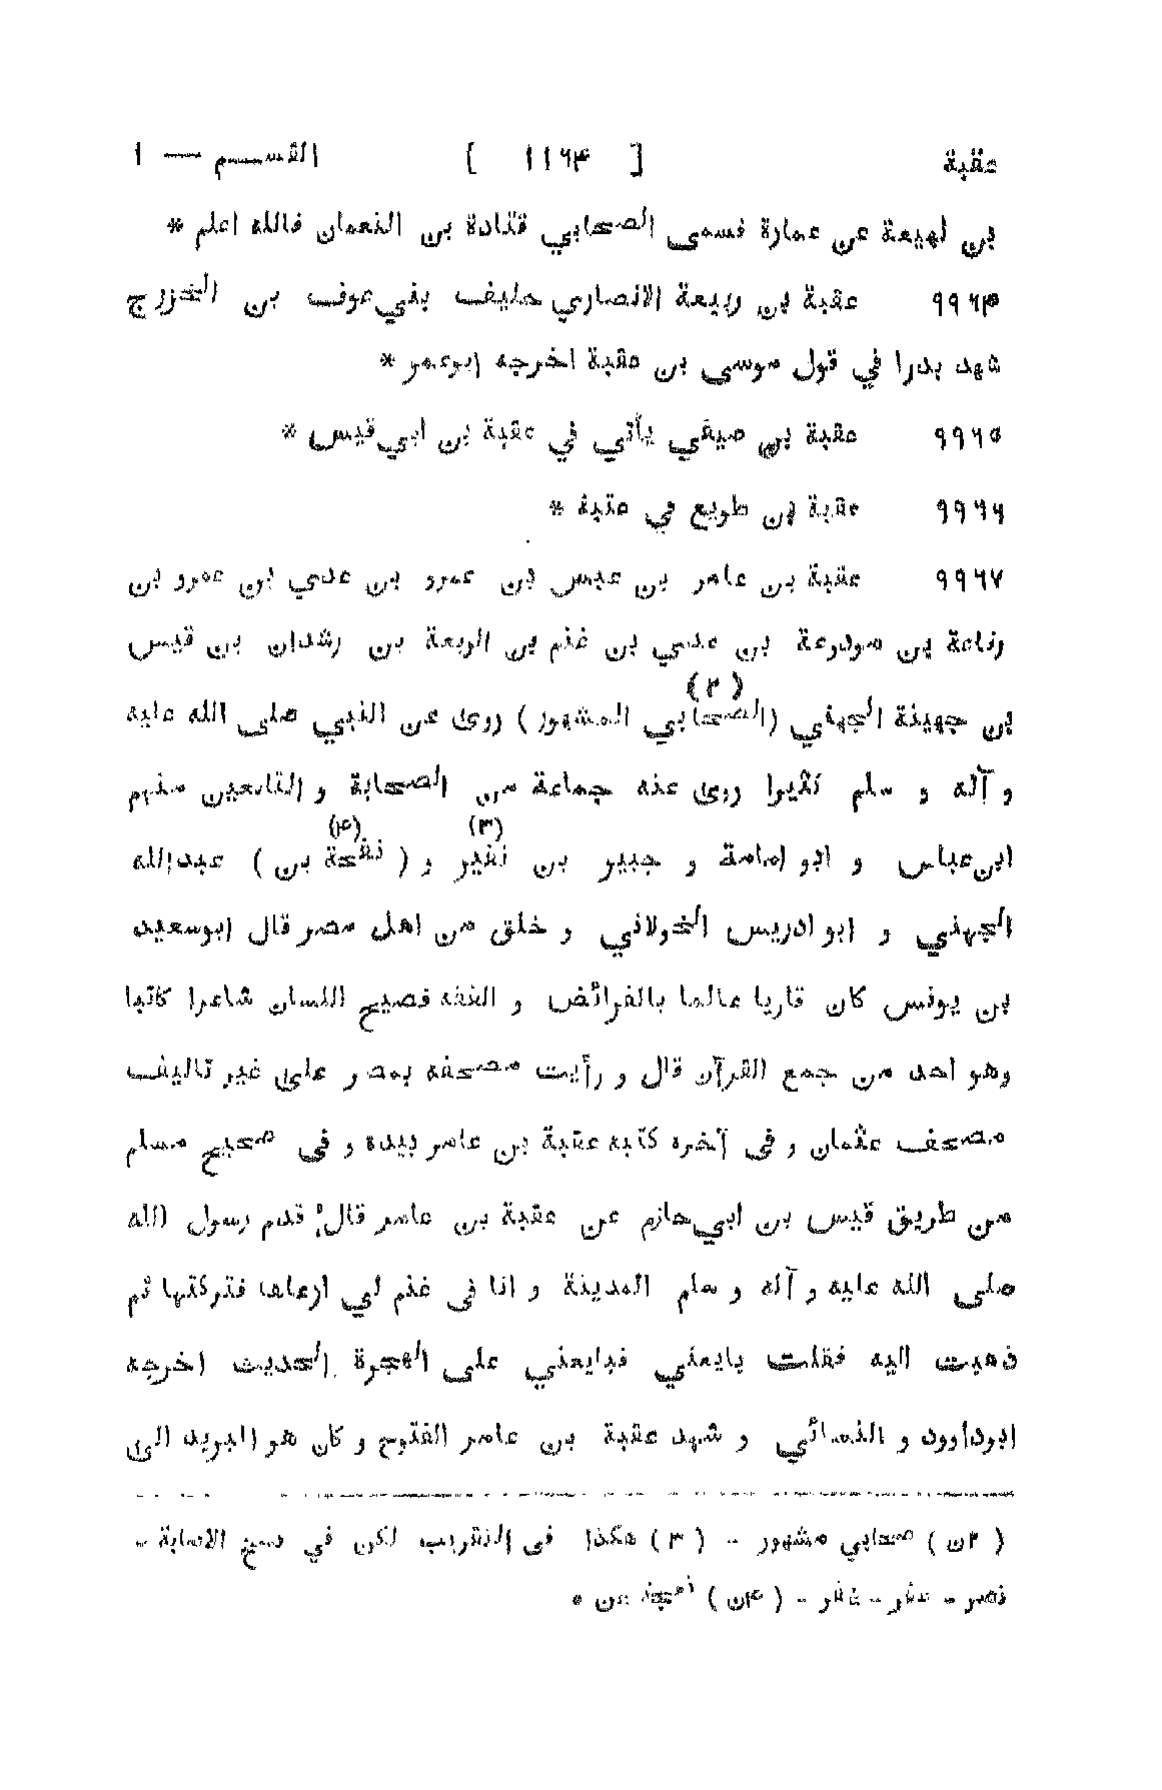 عقبة [ ١١٦٣ ] القسم — ١
بن لهيعة عن عمارة فسمى الصحابي قتادة بن النعمان فالله اعلم *
٩٩٦٣ عقبة بن ربيعة الانصاري حليف بني عوف بن الخزرج
شهد بدرا في قول موسى بن عقبة اخرجه ابوعمر *
٩٩٦٥ عقبة بن صيفي يأتي في عقبة بن ابي قيس *
٩٩٦٦ عقبة بن طويع في عتبة *
٩٩٦٧ عقبة بن عامر بن عبس بن عمرو بن عدي بن عمرو بن
رفاعة بن مودوعة بن عدي بن غنم بن الربعة بن رشدان بن قيس
بن جهينة الجهني (الصحابي المشهور) (٢) روى عن النبي صلى الله عليه
و آله و سلم كثيرا روى عنه جماعة من الصحابة و التابعين منهم
ابن عباس و ابو امامة و جبير بن نفير (٣) و ( نفحة بن ) (٤) عبدالله
الجهني و ابو ادريس الخولاني و خلق من اهل مصر قال ابوسعيد
بن يونس كان قاريا عالما بالفرائض و الفقه فصيح اللسان شاعرا كاتبا
وهو احد من جمع القرآن قال و رأيت مصحفه بمصر على غير تاليف
مصحف عثمان و فى آخره كتبه عقبة بن عامر بيده و فى صحيح مسلم
من طريق قيس بن ابي حازم عن عقبة بن عامر قال قدم رسول الله
صلى الله عليه و آله و سلم المدينة و انا فى غنم لي ارعاها فتركتها ثم
ذهبت اليه فقلت بايعني فبايعني على الهجرة الحديث اخرجه
ابوداوود و النسائي و شهد عقبة بن عامر الفتوح و كان هو البريد الى
( ٢ن ) صحابي مشهور - ( ٣ ) هكذا فى التقريب لكن في نسخ الاصابة -
نصر - عفر - غفر - ( ٤ن ) عن *